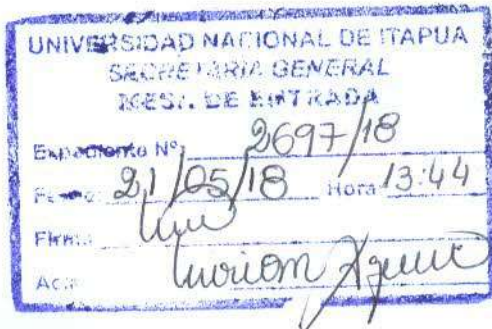 UNIVERSIDAD NACIONAL DE ITAPUA
SECRETARIA GENERAL
MESA DE ENTRADA
Expediente Nº 2697/18
Fecha: 21/05/18 Hora: 13:44
Firma:
Acl: